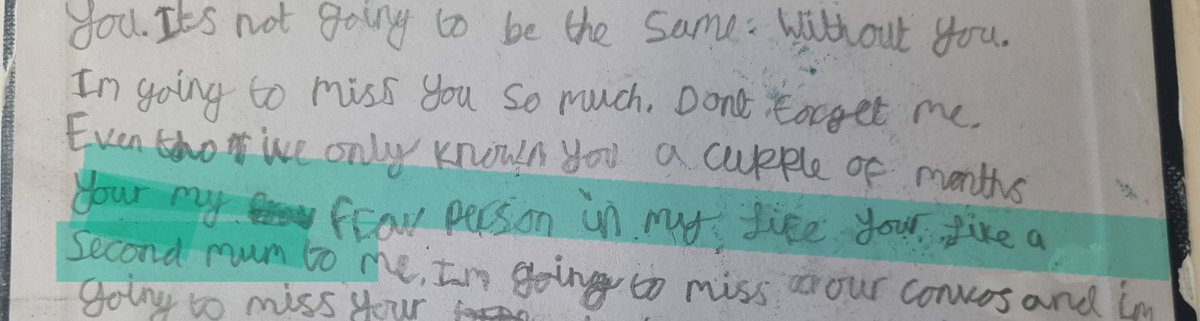 You. It's not going to be the same. Without you.
Im going to miss you so much. Dont Forget me.
Even tho ive only known you a cupple of months
Your my frav person in my life your like a
second mum to me. Im going to miss our convos and im
going to miss your